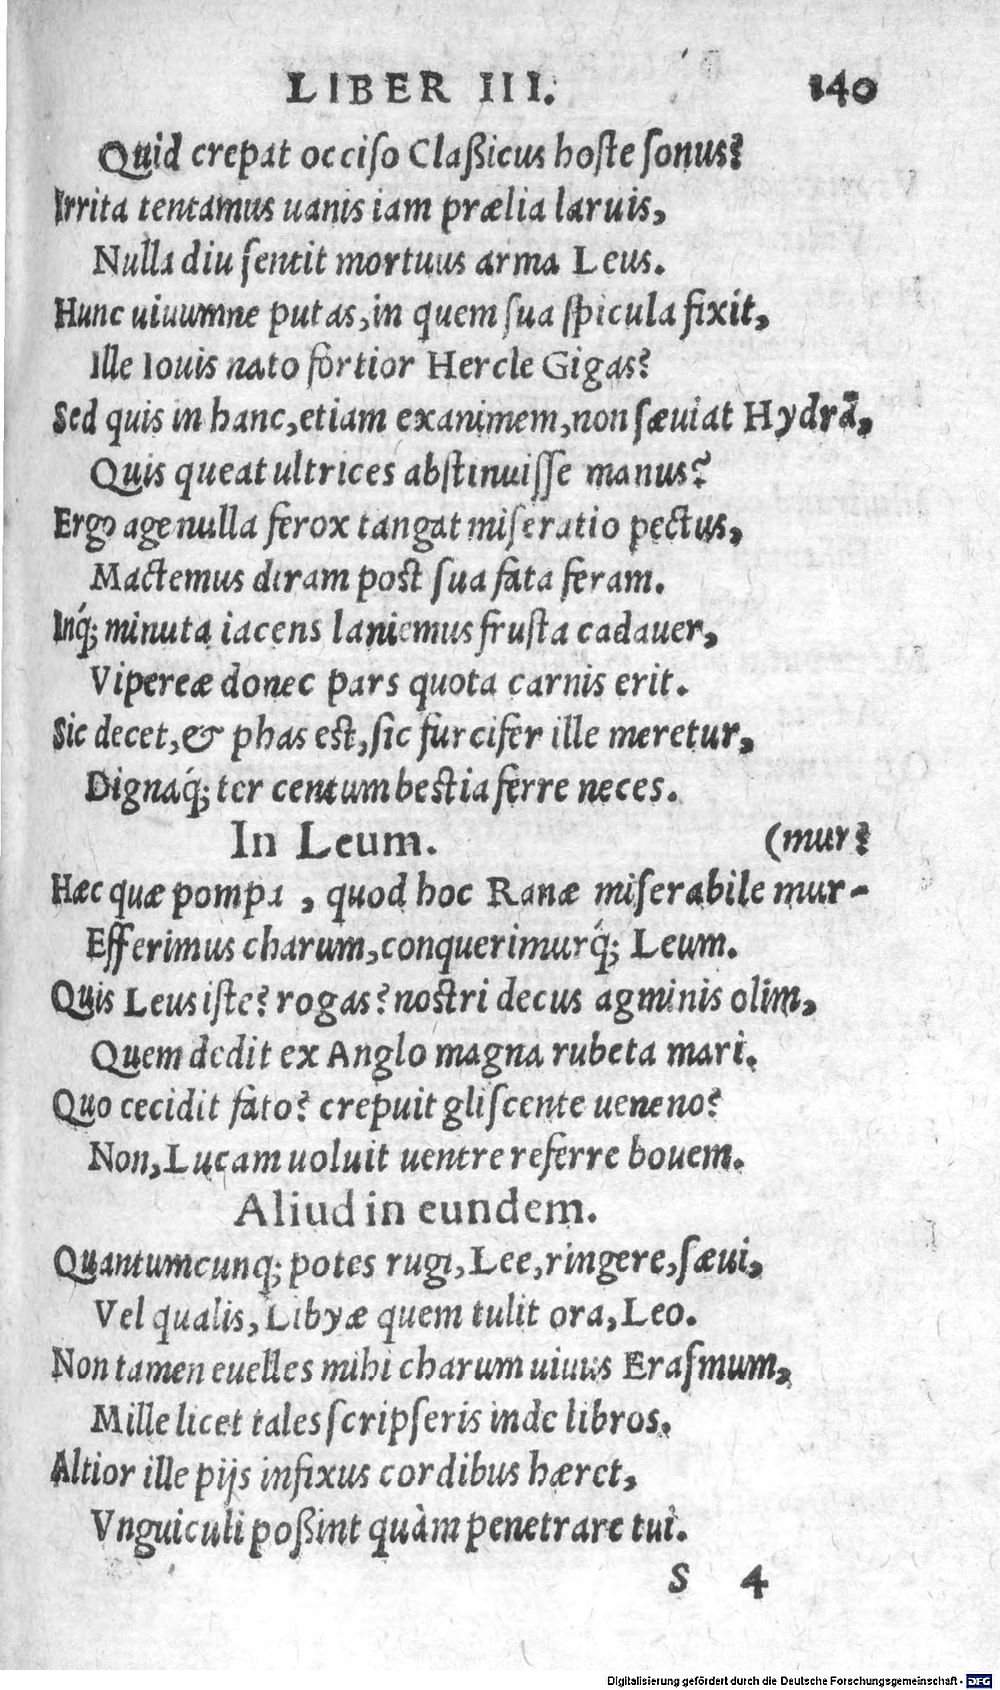 LIBER III. 140
Quid crepat occiſo Claßicus hoſte ſonus?
Irrita tentamus uanis iam prælia laruis,
Nulla diu ſentit mortuus arma Leus.
Hunc uiuumne putas, in quem ſua ſpicula fixit,
Ille Iouis nato fortior Hercle Gigas?
Sed quis in hanc, etiam exanimem, non ſæuiat Hydrã,
Quis queat ultrices abſtinuiſſe manus?
Ergo age nulla ferox tangat miſeratio pectus,
Mactemus diram poſt ſua fata feram.
Inq́; minuta iacens laniemus fruſta cadauer,
Vipereæ donec pars quota carnis erit.
Sic decet, & phas eſt, ſic furcifer ille meretur,
Dignaq́; ter centum beſtia ferre neces.
In Leum. (mur?
Hæc quæ pompa, quod hoc Ranæ miſerabile mur-
Efferimus charum, conquerimurq́; Leum.
Quis Leus iſte? rogas? noſtri decus agminis olim,
Quem dedit ex Anglo magna rubeta mari.
Quo cecidit fato? crepuit gliſcente ueneno?
Non, Lucam uoluit uentre referre bouem.
Aliud in eundem.
Quantumcunq; potes rugi, Lee, ringere, ſæui,
Vel qualis, Libyæ quem tulit ora, Leo.
Non tamen euelles mihi charum uiuus Eraſmum,
Mille licet tales ſcripſeris inde libros.
Altior ille pijs infixus cordibus hæret,
Vnguiculi poßint quàm penetrare tui.
S 4
Digitalisierung gefördert durch die Deutsche Forschungsgemeinschaft - DFG